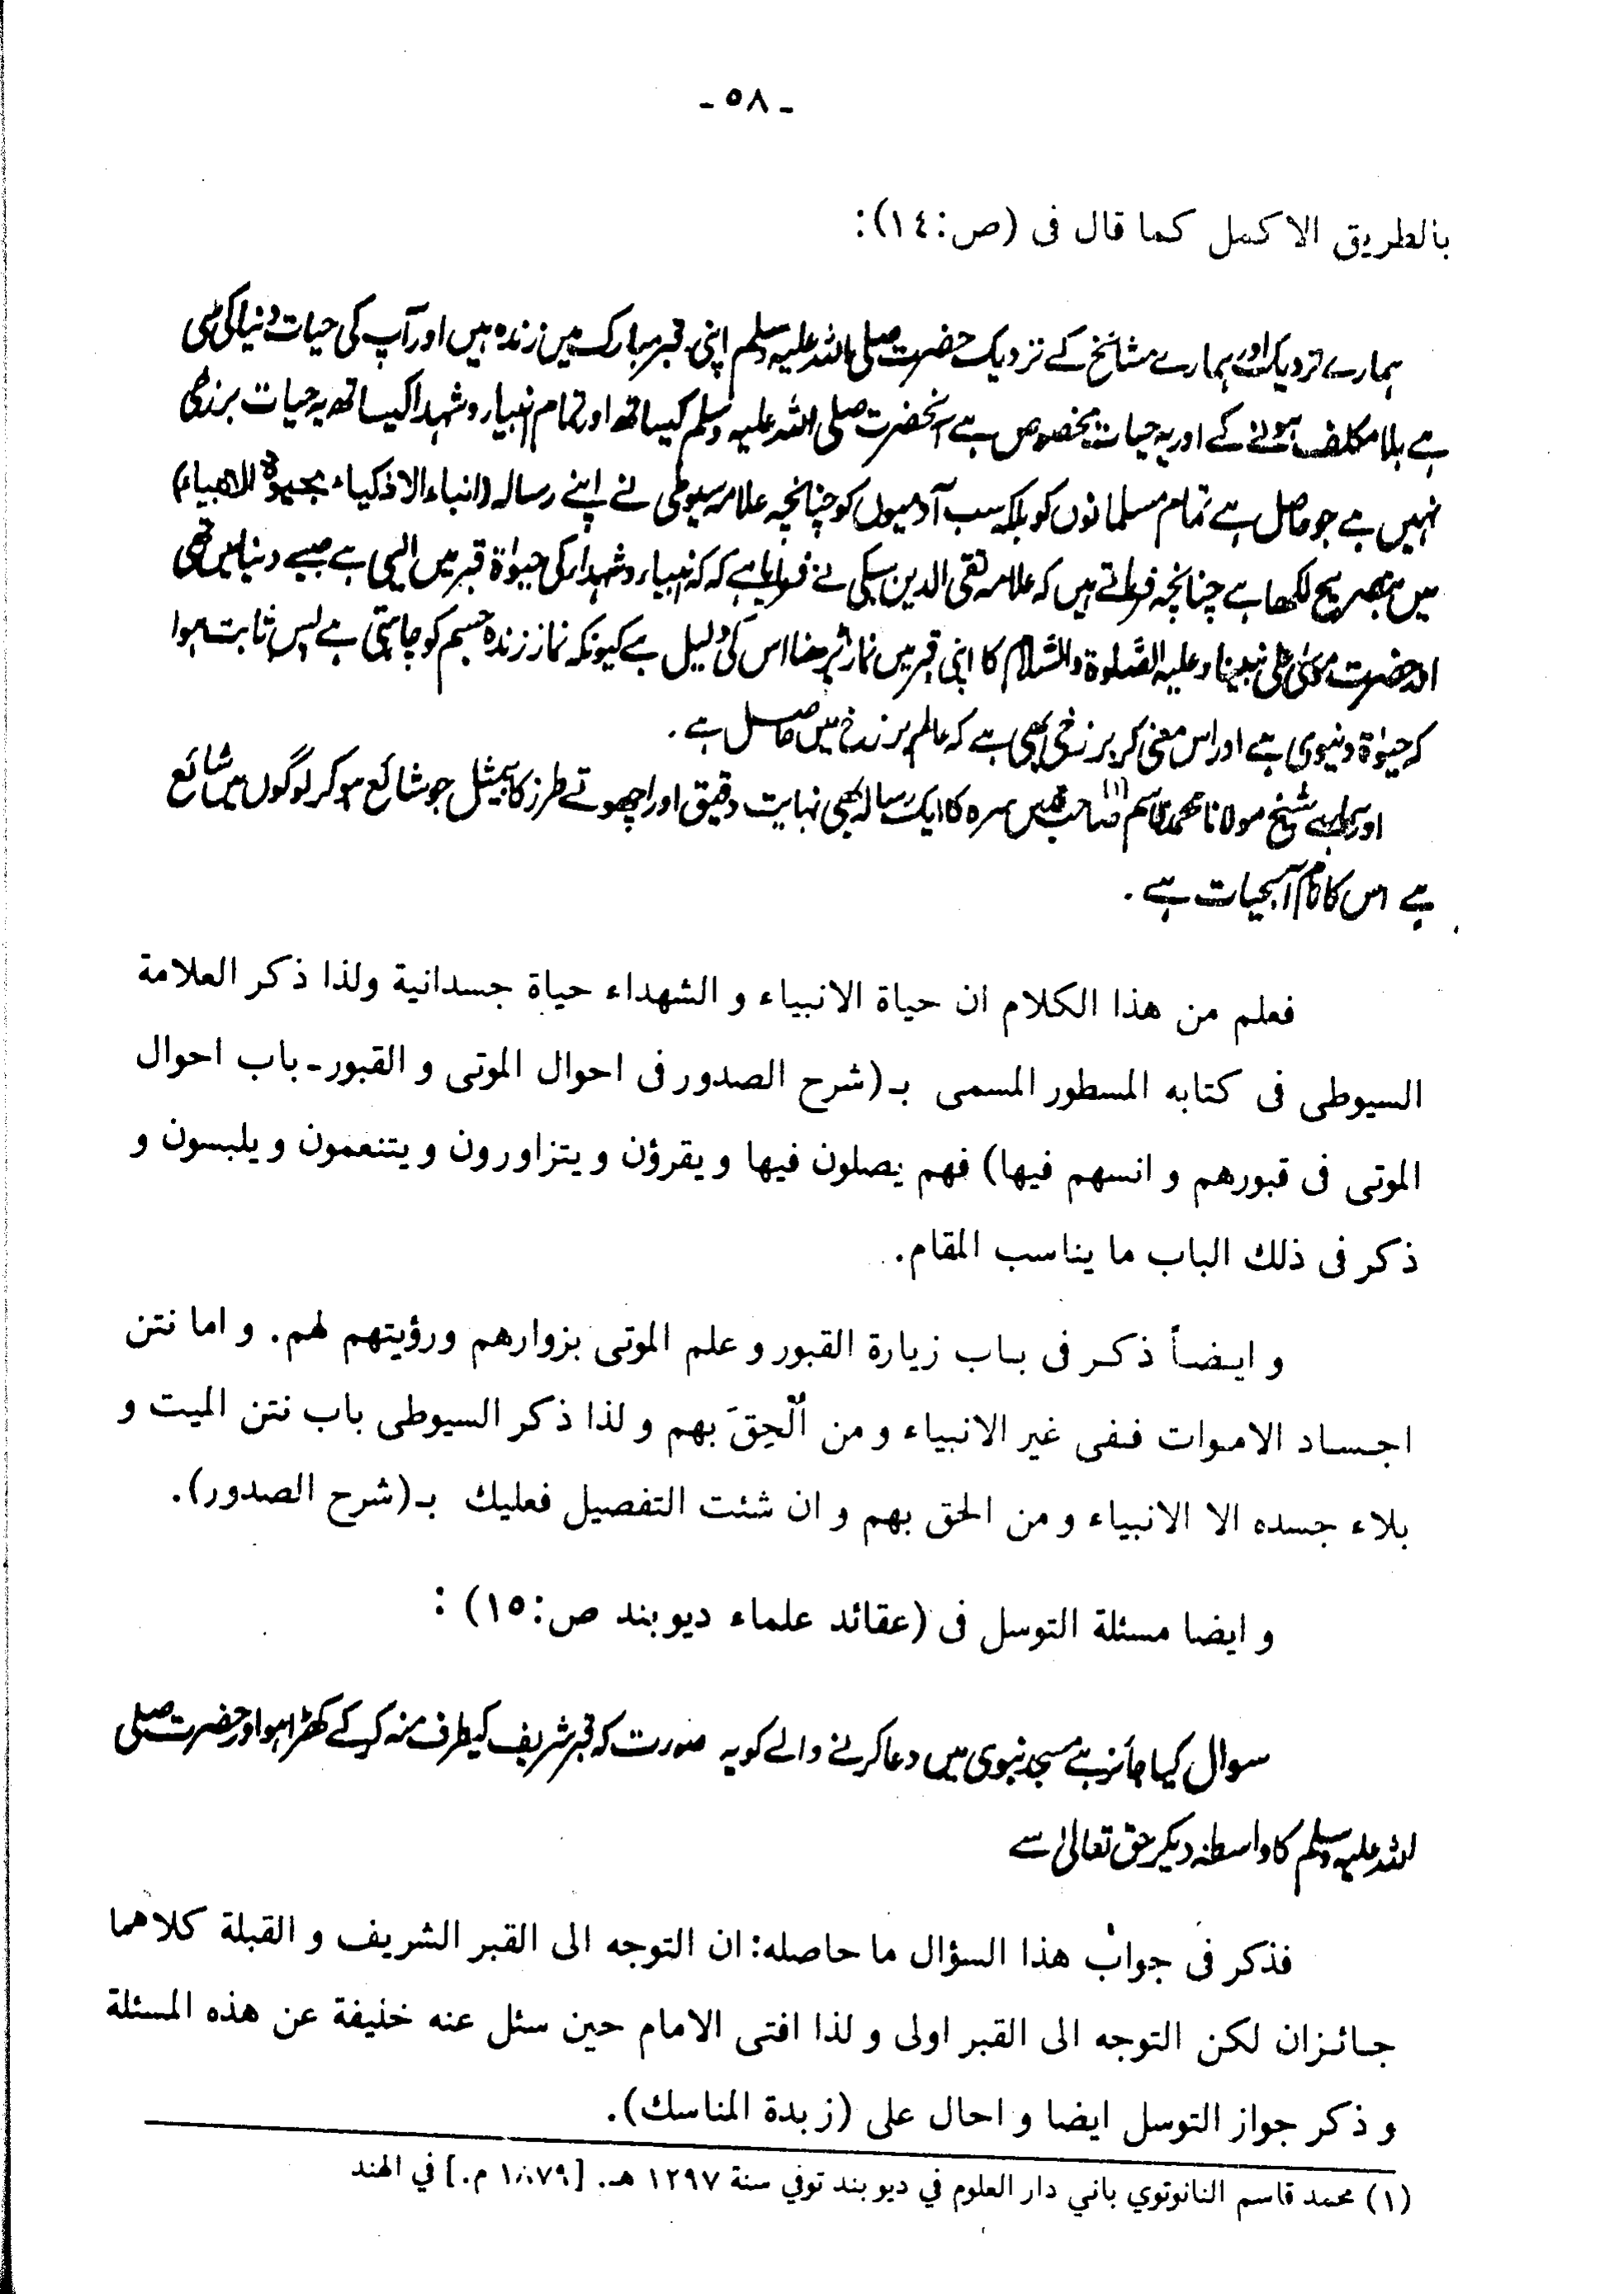 - ٥٨ -
بالطريق الاكمل كما قال فى (ص:١٤):
ہمارے نزدیک اور ہمارے مشائخ کے نزدیک حضرت صلی اللہ علیہ وسلم اپنی قبر مبارک میں زندہ ہیں اور آپ کی حیات دنیا کی سی
ہے بلا مکلف ہونے کے اور یہ حیات مخصوص ہے آنحضرت صلی اللہ علیہ وسلم کیساتھ اور تمام انبیاء و شہدا کیساتھ یہ حیات برزخی
نہیں ہے جو حاصل ہے تمام مسلمانوں کو بلکہ سب آدمیوں کو چنانچہ علامہ سیوطی نے اپنے رسالہ (انباء الاذكياء بحيوة الانبياء)
میں بتصریح لکھا ہے چنانچہ فرماتے ہیں کہ علامہ تقی الدین سبکی نے فرمایا ہے کہ انبیاء و شہداء کی حیوٰة قبر میں ایسی ہے جیسے دنیا میں تھی
اور حضرت موسیٰ علی نبینا وعلیہ الصّلوة والسّلام کا اپنی قبر میں نماز پڑھنا اس کی دلیل ہے کیونکہ نماز زندہ جسم کو چاہتی ہے پس ثابت ہوا
کہ حیوٰة دنیوی ہے اور اس معنی کر برزخی بھی ہے کہ عالم برزخ میں حاصل ہے.
اور ہمارے شیخ مولانا محمد قاسم (١) صاحب قدس سرہ کا ایک رسالہ بھی نہایت دقیق اور اچھوتے طرز کا بیمثل جو شائع ہو کر لوگوں میں شائع
ہے اس کا نام آبحیات ہے.
فعلم من هذا الكلام ان حياة الانبياء و الشهداء حياة جسدانية ولذا ذكر العلامة
السيوطى فى كتابه المسطور المسمى بـ(شرح الصدور فى احوال الموتى و القبور ـ باب احوال
الموتى فى قبورهم و انسهم فيها) فهم يصلون فيها و يقرؤن و يتزاورون و يتنعمون و يلبسون و
ذكر فى ذلك الباب ما يناسب المقام.
و ايضاً ذكر فى باب زيارة القبور و علم الموتى بزوارهم ورؤيتهم لهم. و اما نتن
اجساد الاموات ففى غير الانبياء و من اُلْحِقَ بهم و لذا ذكر السيوطى باب نتن الميت و
بلاء جسده الا الانبياء و من الحق بهم و ان شئت التفصيل فعليك بـ(شرح الصدور).
و ايضا مسئلة التوسل فى (عقائد علماء ديوبند ص:١٥) :
سوال کیا جائز ہے مسجد نبوی میں دعا کرنے والے کو یہ صورت کہ قبر شریف کیطرف منہ کر کے کھڑا ہو اور حضرت صلی
اللہ علیہ وسلم کا واسطہ دیکر حق تعالیٰ سے
فذكر فى جواب هذا السؤال ما حاصله: ان التوجه الى القبر الشريف و القبلة كلاهما
جائزان لكن التوجه الى القبر اولى و لذا افتى الامام حين سئل عنه خليفة عن هذه المسئلة
و ذكر جواز التوسل ايضا و احال على (زبدة المناسك).
(١) محمد قاسم النانوتوي باني دار العلوم في ديوبند توفي سنة ١٢٩٧ هـ. [١٨٧٩ م.] في الهند